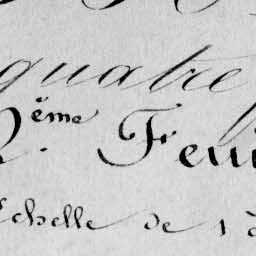 quatre
2.ème Feui
Echelle de 1 à